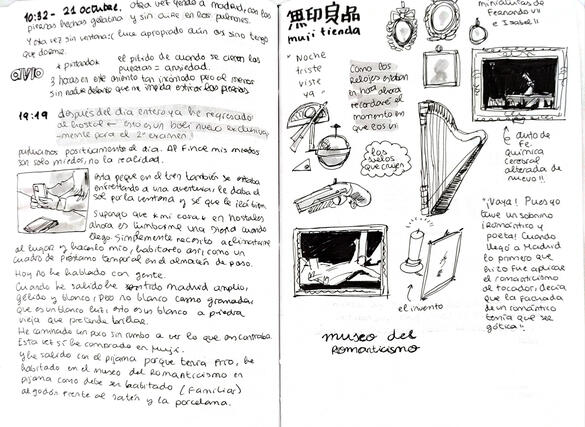 10:32 - 21 octubre. otra vez yendo a madrid, con las
piernas hechas gelatina y sin aire en los pulmones.
Y otra vez sin ventana:( luce apropiado aún así sino tengo
que dormir.
el pitido de cuando se cierran las
puertas = ansiedad.
3 horas en este asiento tan incómodo pero al menos
sin nadie delante que me impida estirar las piernas.
19:19 después del día entero ya he regresado
al hostal ← Esto es un boli nuevo exclusiva
-mente para el 2º examen!
puntuamos positivamente el día. Al fin mis miedos
son solo miedos, no la realidad.
Esta peque en el tren también se estaba
enfrentando a una aventura: le daba el
sol por la ventana y sé que le irá bien.
Supongo que mi cosa en hostales
ahora es tumbarme una siesta cuando
llego. Simplemente necesito aclimatarme
al lugar y hacerlo mío, habitarlo así, como un
cuadro de préstamo temporal en el almacén de paso.
Hoy no he hablado con gente.
Cuando he salido he sentido Madrid amplio,
gélido y blanco; pero no blanco como granada,
que es un blanco luz: esto es un blanco a piedra
vieja que pretende brillar.
He caminado un poco sin rumbo a ver lo que encontraba.
Esta vez sí he comprado en Muji.
Y he salido con el pijama porque tenía frío, he
habitado en el museo del Romanticismo en
pijama como debe ser habitado (familiar)
algodón frente al satén y la porcelana.
無印良品
muji tienda
"Noche
triste
viste
ya"
Como los
relojes estaban
en hora ahora
recordaré el
momento en
que los vi
miniaturas de
Fernando VII
e Isabel II
los
suelos
que crujen
auto de
Fe.
química
cerebral
alterada de
nuevo!!
"¡Vaya! Pues yo
tuve un sobrino
¡romántico y
poeta! Cuando
llegó a Madrid
lo primero que
hizo fue aplicar
el romanticismo
al tocador; decía
que la fachada
de un romántico
tenía que ser
gótica".
el invento
museo del
Romanticismo